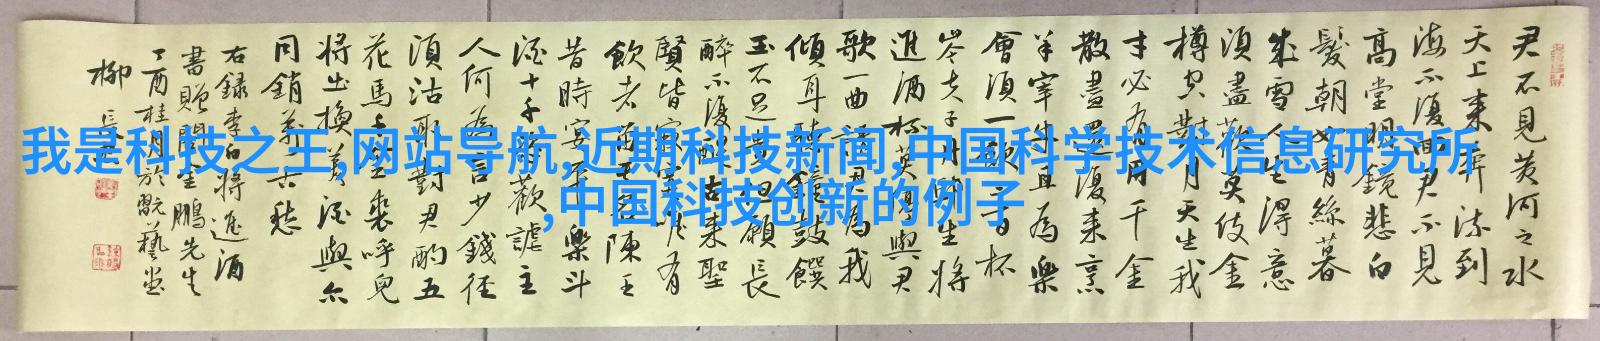 君不见黄河之水
天上来奔流到
海不复回君不见
高堂明镜悲白
髪朝如青絲暮
成雪人生得意
須盡歡莫使金
樽空對月天生我
才必有用千金
散盡還復来烹
羊宰牛且為樂
會須一飲三百杯
岑夫子丹丘生将
進酒杯莫停與君
歌一曲請君為我
傾耳聽鐘鼓饌
玉不足貴但願長
醉不復醒古来聖
賢皆寂寞惟有
飲者留其名陳王
昔時宴平樂斗
酒十千恣歡謔主
人何為言少錢径
須沽取對君酌五
花馬千金裘呼兒
将出換美酒與尔
同銷萬古愁
右録李白将進酒
書贈 鵬先生
丁酉桂月於 藝堂
柳
我是科技之王,网站导航,近期科技新闻,中国科学技术信息研究所
,中国科技创新的例子